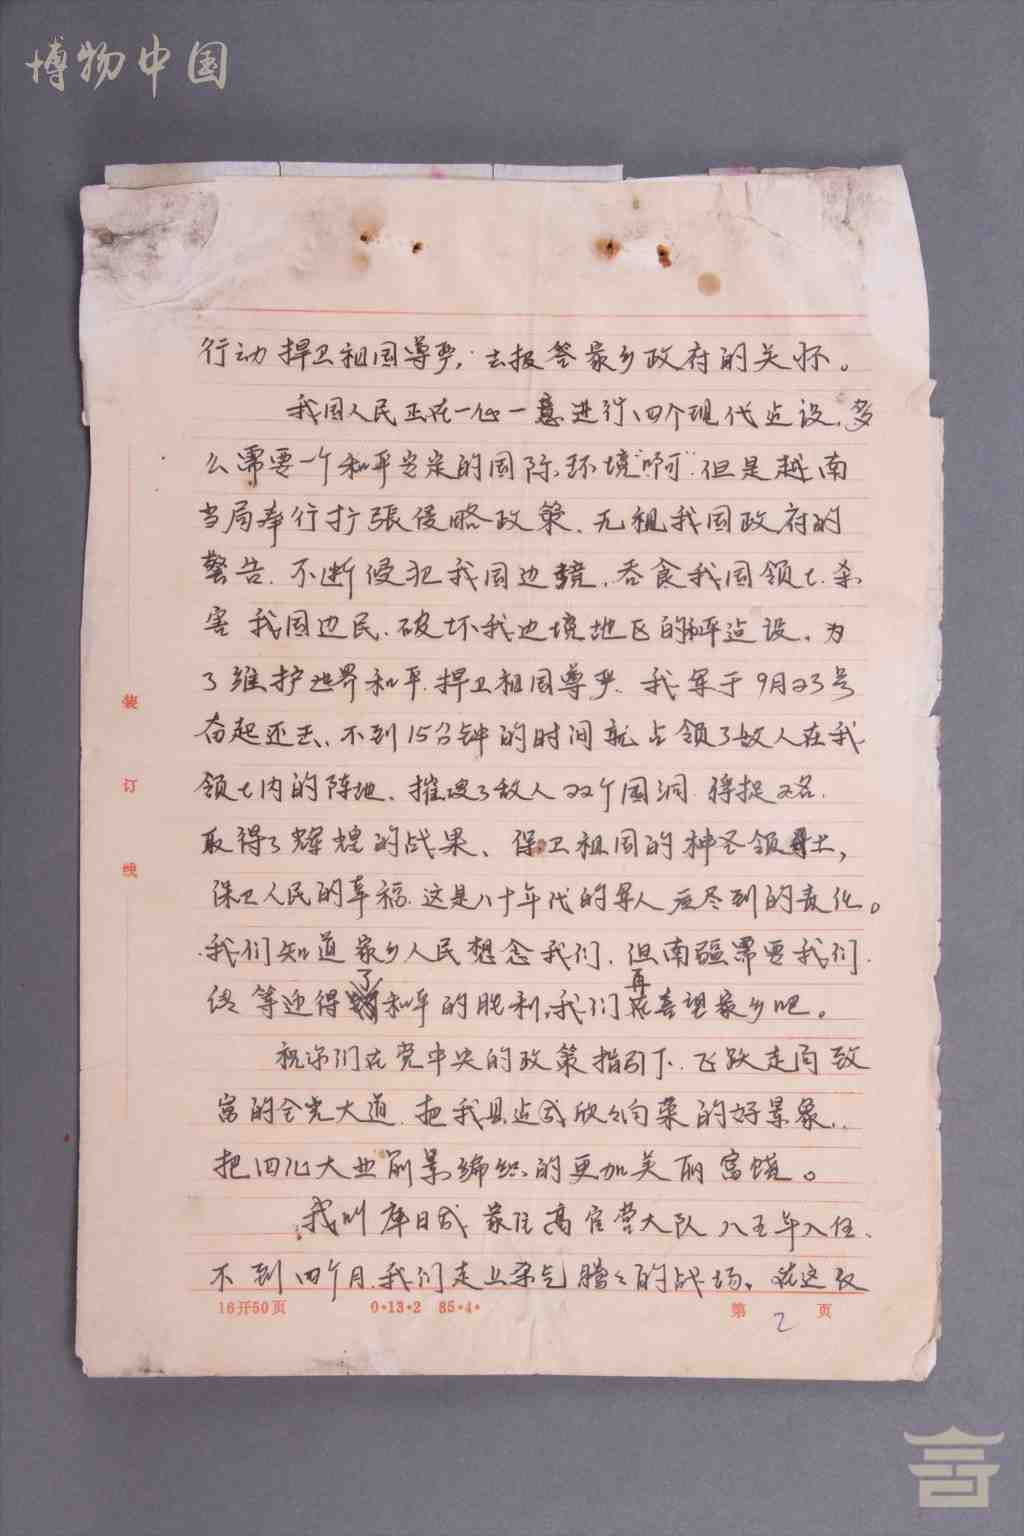 博物中国
行动捍卫祖国尊严,去报答家乡政府的关怀。
我国人民正在一心一意进行四个现代边设,多
么需要一个和平安定的国际环境"啊".但是越南
当局奉行扩張侵略政策、无视我国政府的
警告.不断侵犯我国边境,吞食我国领土.杀
害我国边民.破坏我边境地区的和平边设。为
了维护世界和平.捍卫祖国尊严.我军于9月23号
奋起还击、不到15分钟的时间就占领了敌人在我
领土内的阵地、摧毁了敌人22个国洞.俘捉2名.
取得了辉煌的战果、保卫祖国的神圣领土,
保卫人民的幸福.这是八十年代的军人应尽到的责任。
我们知道家乡人民想念我们.但南疆需要我们.
等迎得了和平的胜利,我们再喜望家乡吧。
祝你们在党中央的政策指引下.飞跃走向致
富的全光大道.把我县边成欣欣向荣的好景象..
把四化大业前景编织的更加美丽富饶。
我叫库日成.家住高官营大队.八五年入伍、
不到四个月.我们走上杀气腾々的战场。在这次
装
订
线
16开50页 0·13·2 85·4·
第 2 页